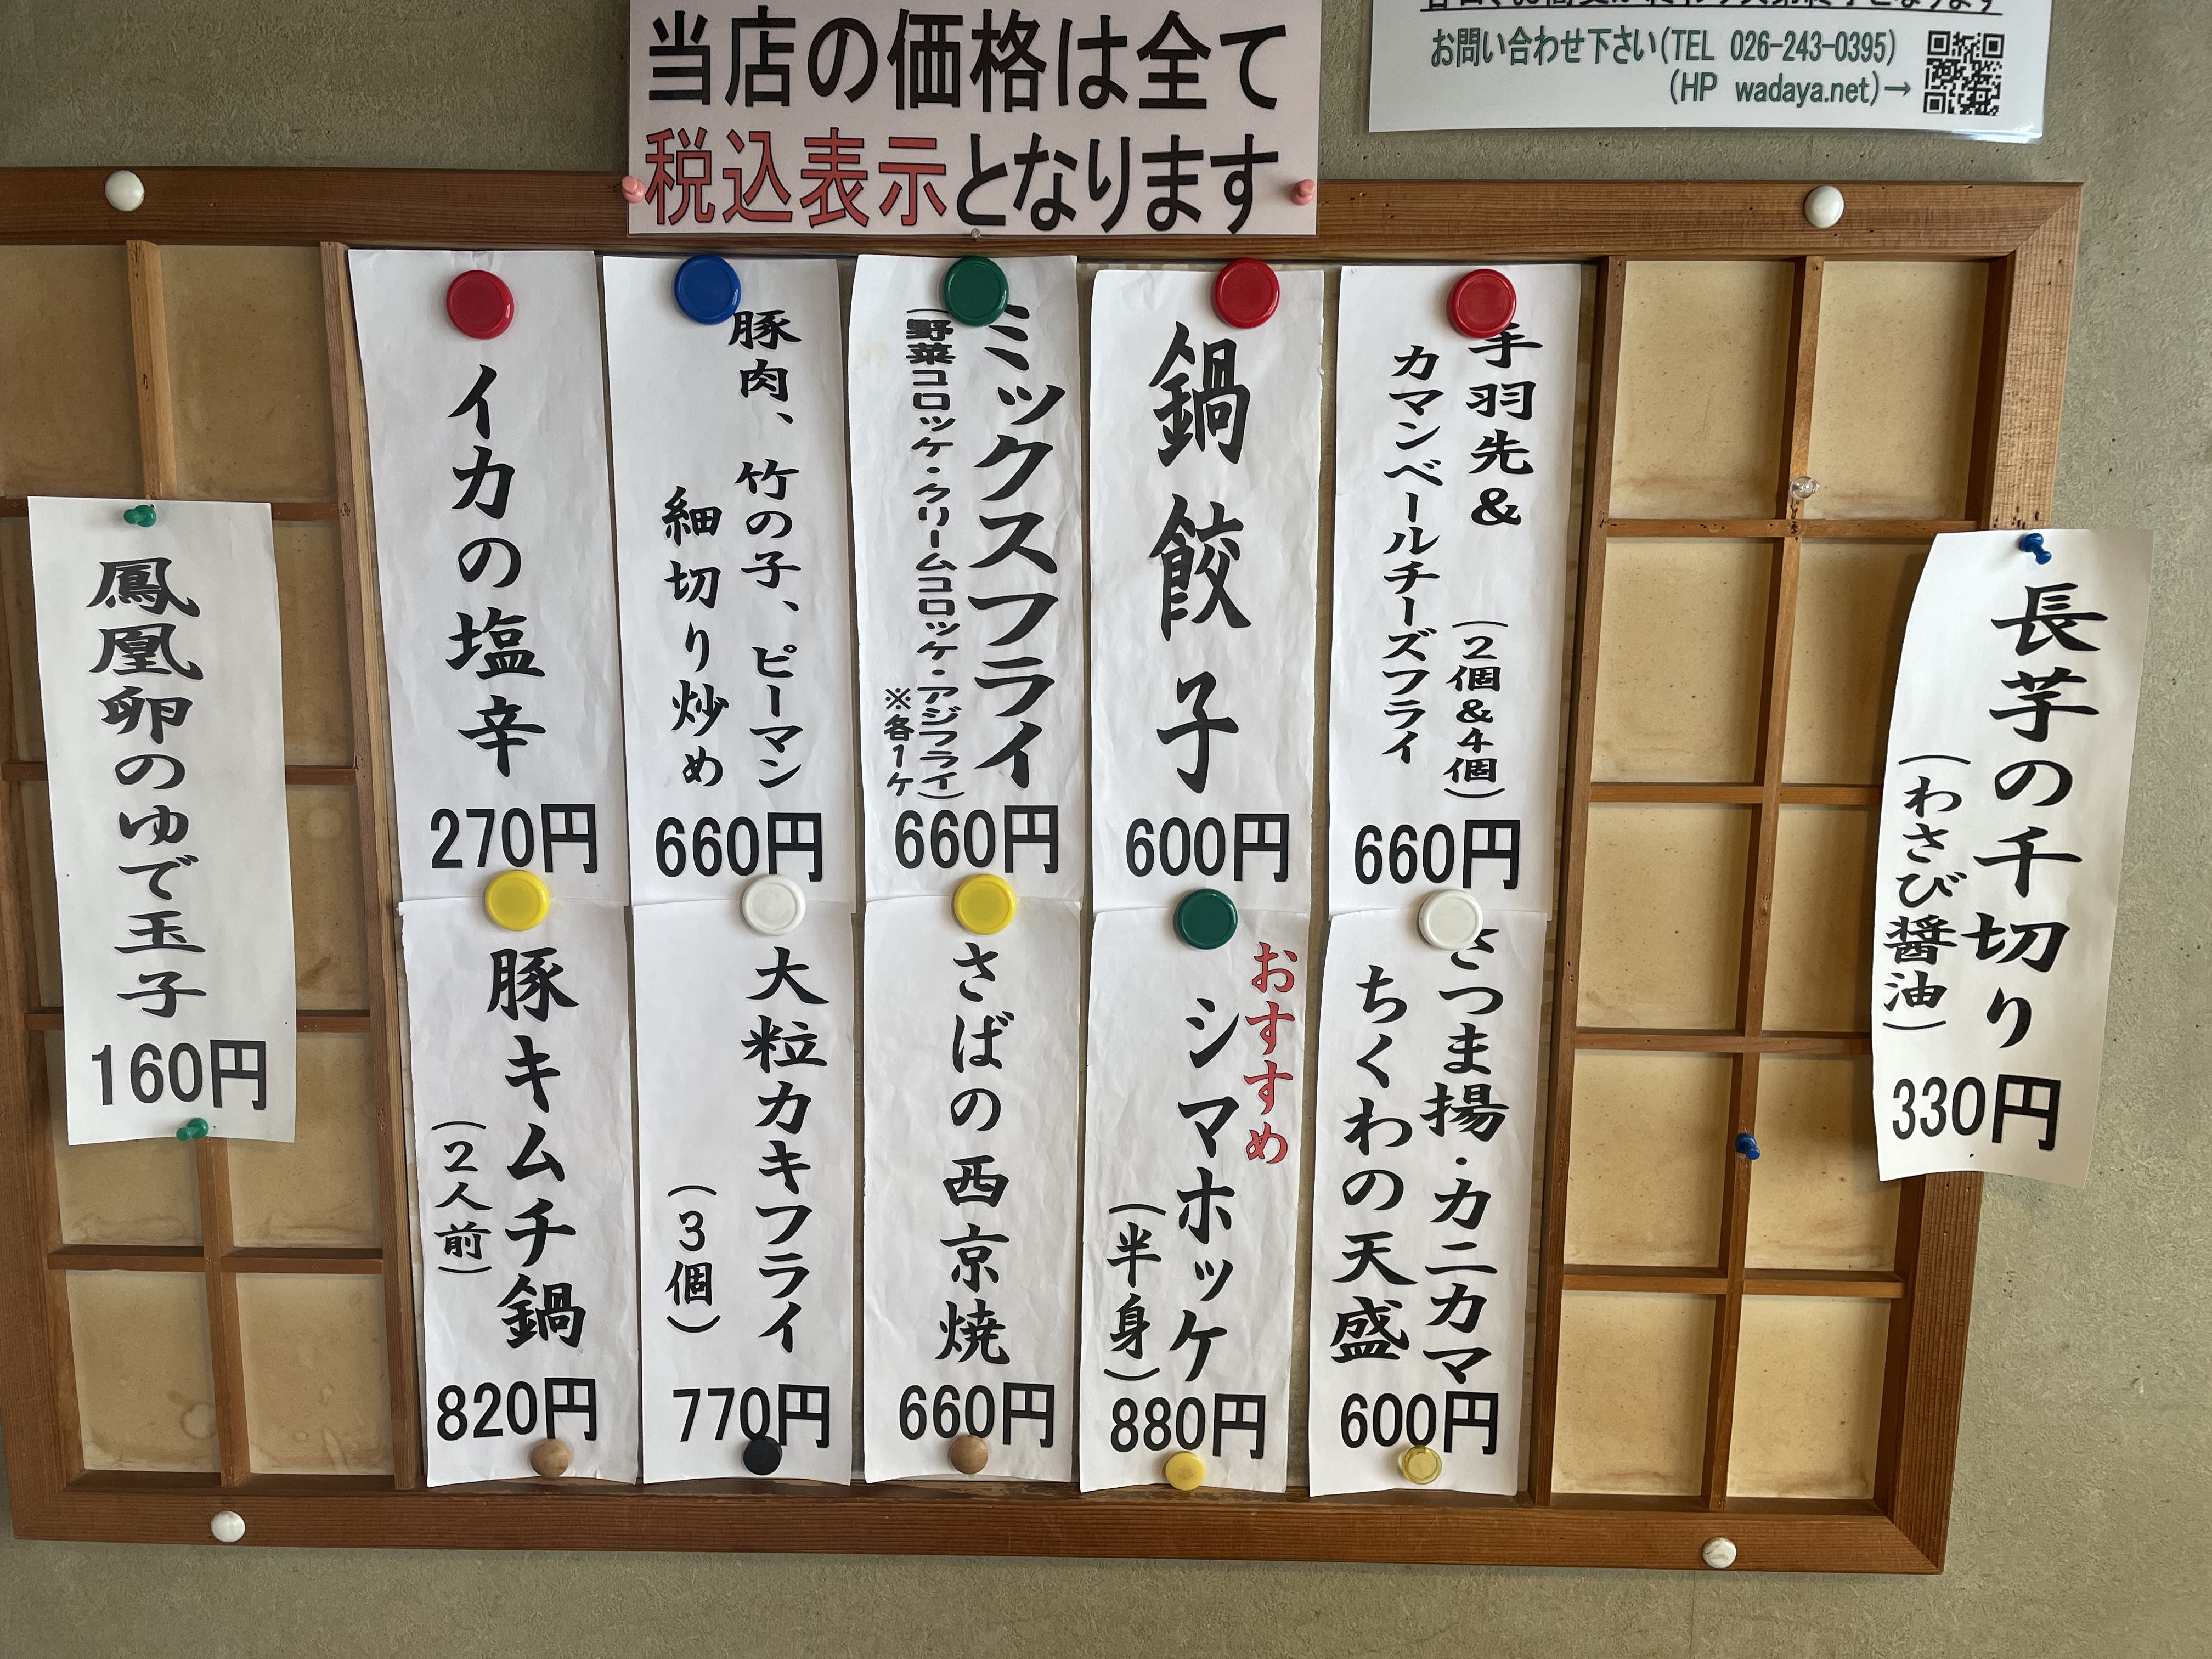 当店の価格は全て
税込表示となります
お問い合わせ下さい(TEL 026-243-0395)
(HP wadaya.net)→
長芋の千切り
(わさび醤油)
330円
手羽先&
(2個&4個)
カマンベールチーズフライ
660円
鍋餃子
600円
ミックスフライ
(野菜コロッケ・クリームコロッケ・アジフライ)
※各1ケ
660円
豚肉、竹の子、ピーマン
細切り炒め
660円
イカの塩辛
270円
さつま揚・カニカマ
ちくわの天盛
600円
おすすめ
シマホッケ
(半身)
880円
さばの西京焼
660円
大粒カキフライ
(3個)
770円
豚キムチ鍋
(2人前)
820円
鳳凰卵のゆで玉子
160円